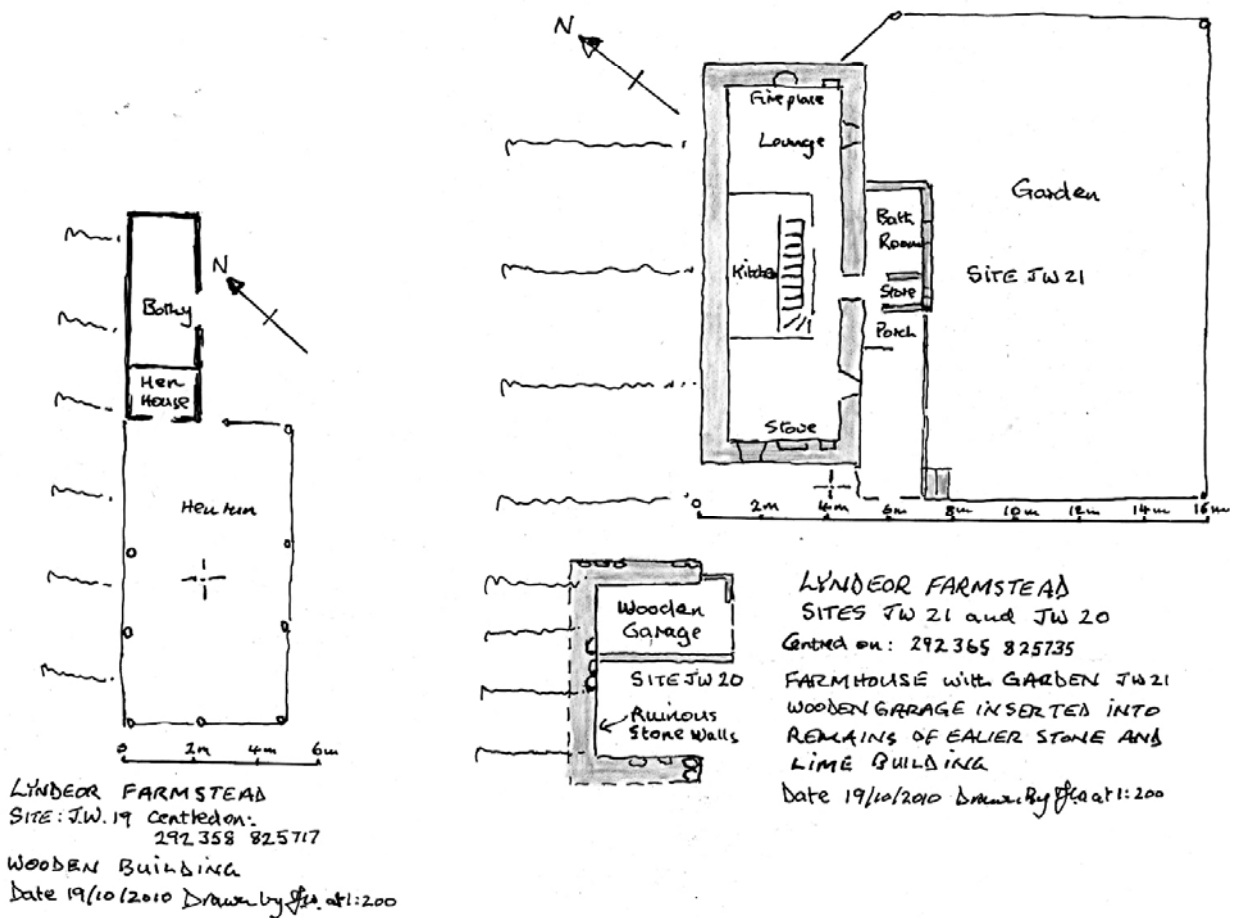 N
Bothy
Hen
House
Hen run
0 2m 4m 6m
LYNDEOR FARMSTEAD
SITE: J.W. 19 Centred on:
292 358 825717
WOODEN BUILDING
Date 19/10/2010 Drawn by at 1:200
N
N
Fireplace
Lounge
Kitchen
Bath
Room
Store
Porch
Stove
Garden
SITE JW 21
0 2m 4m 6m 8m 10m 12m 14m 16m
Wooden
Garage
SITE JW 20
Ruinous
Stone Walls
LYNDEOR FARMSTEAD
SITES JW 21 and JW 20
Centred on: 292 365 825735
FARMHOUSE with GARDEN JW21
WOODEN GARAGE INSERTED INTO
REMAINS OF EALIER STONE AND
LIME BUILDING
Date 19/10/2010 Drawn By at 1:200